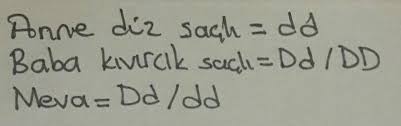 Anne diz saçlı = dd
Baba kıvırcık saçlı = Dd / DD
Meva = Dd / dd